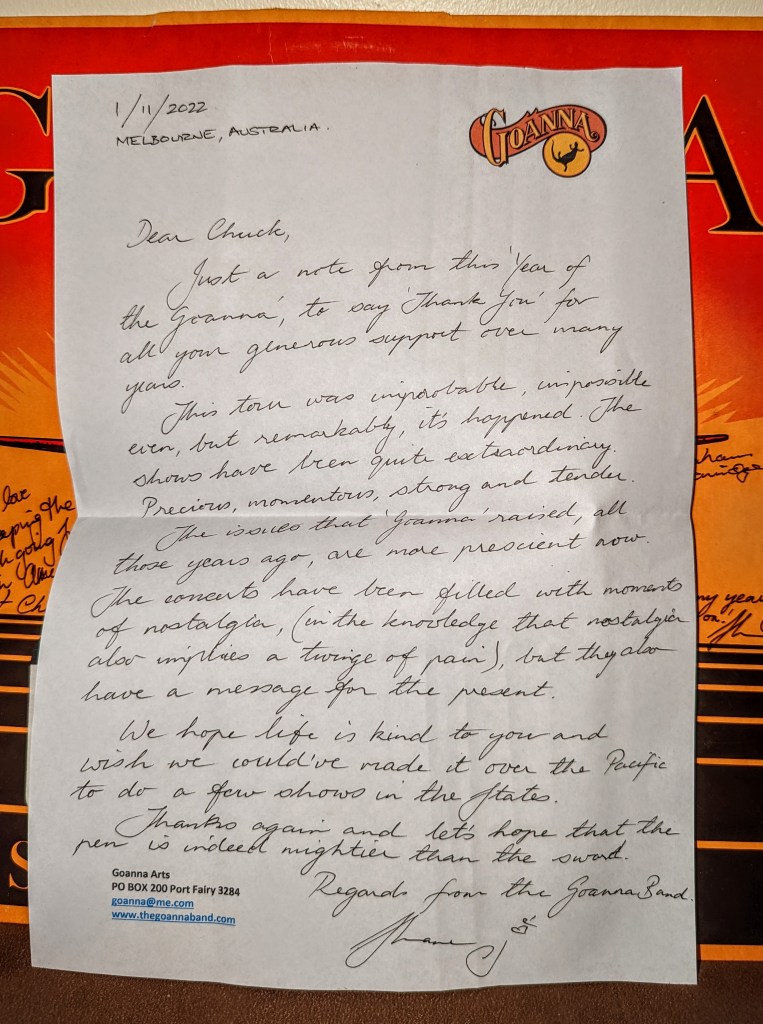 1/11/2022
MELBOURNE, AUSTRALIA.
GOANNA
G
A
Dear Chuck,
Just a note from this 'Year of
the Goanna', to say 'Thank You' for
all your generous support over many
years.
This tour was improbable, impossible
even, but remarkably, it's happened. The
shows have been quite extraordinary.
Precious, momentous, strong and tender.
The issues that 'Goanna' raised, all
those years ago, are more prescient now.
The concerts have been filled with moments
of nostalgia, (in the knowledge that nostalgia
also implies a twinge of pain), but they also
have a message for the present.
We hope life is kind to you and
wish we could've made it over the Pacific
to do a few shows in the States.
Thanks again and let's hope that the
pen is indeed mightier than the sword.
Regards from the Goanna Band.
Shane
Goanna Arts
PO BOX 200 Port Fairy 3284
goanna@me.com
www.thegoannaband.com
the
going
my year
S